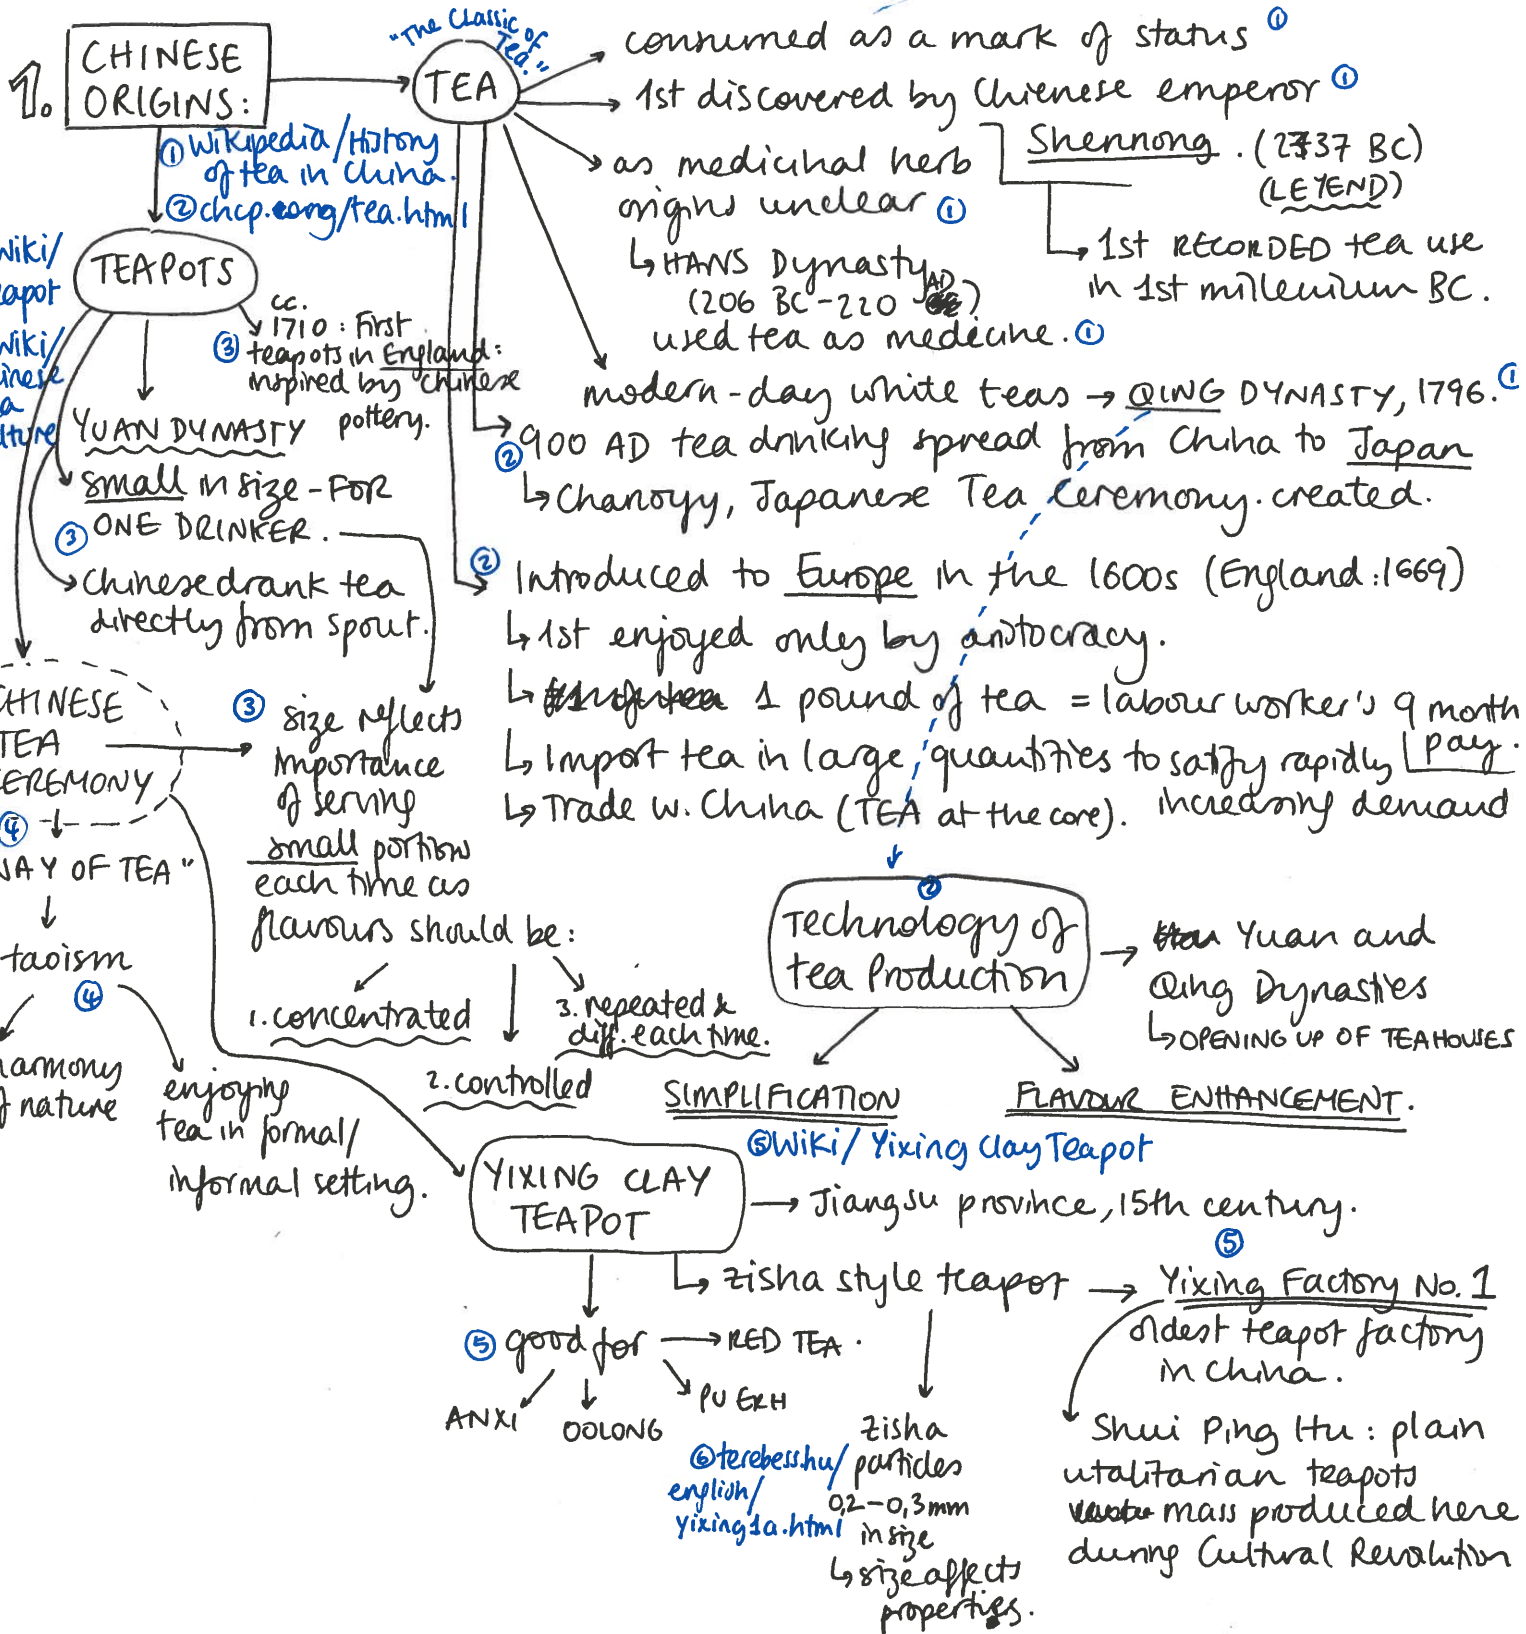 1. CHINESE
ORIGINS:
"The Classic of
Tea."
TEA
consumed as a mark of status ①
1st discovered by Chienese emperor ①
Shennong. (2737 BC)
(LEYEND)
1st RECORDED tea use
in 1st millenium BC.
as medicinal herb
origins unclear ①
HANS Dynasty
(206 BC-220 AD)
used tea as medicine. ①
modern-day white teas → QING DYNASTY, 1796. ①
② 900 AD tea drinking spread from China to Japan
Chanoyy, Japanese Tea Ceremony. created.
② Introduced to Europe in the 1600s (England:1669)
1st enjoyed only by aristocracy.
1 pound of tea = labour worker's 9 month
pay.
Import tea in large quantities to satisfy rapidly
increasing demand
Trade w. China (TEA at the core).
① Wikipedia/History
of tea in China.
② chcp.org/tea.html
Wiki/
eapot
Wiki/
inese
a
lture
TEAPOTS
cc.
1710: First
③ teapots in England:
inspired by chinese
pottery.
YUAN DYNASTY
small in size-FOR
③ ONE DRINKER.
Chinese drank tea
directly from spout.
CHINESE
TEA
CEREMONY
④
WAY OF TEA"
taoism
④
harmony
of nature
enjoying
tea in formal/
informal setting.
③ size reflects
importance
of serving
small portion
each time as
flavours should be:
1. concentrated
2. controlled
3. repeated &
diff. each time.
②
Technology of
tea Production
Yuan and
Qing Dynasties
OPENING UP OF TEAHOUSES
SIMPLIFICATION
FLAVOUR ENHANCEMENT.
⑤ Wiki/Yixing Clay Teapot
YIXING CLAY
TEAPOT
Jiangsu province, 15th century.
⑤
zisha style teapot → Yixing Factory No. 1
oldest teapot factory
in China.
Shui Ping Hu: plain
utalitarian teapots
mass produced here
during Cultural Revolution
⑤ good for → RED TEA.
PU ERH
OOLONG
ANXI
⑥ terebess.hu/
english/
yixing1a.html
zisha
particles
0,2-0,3mm
in size
size affects
properties.